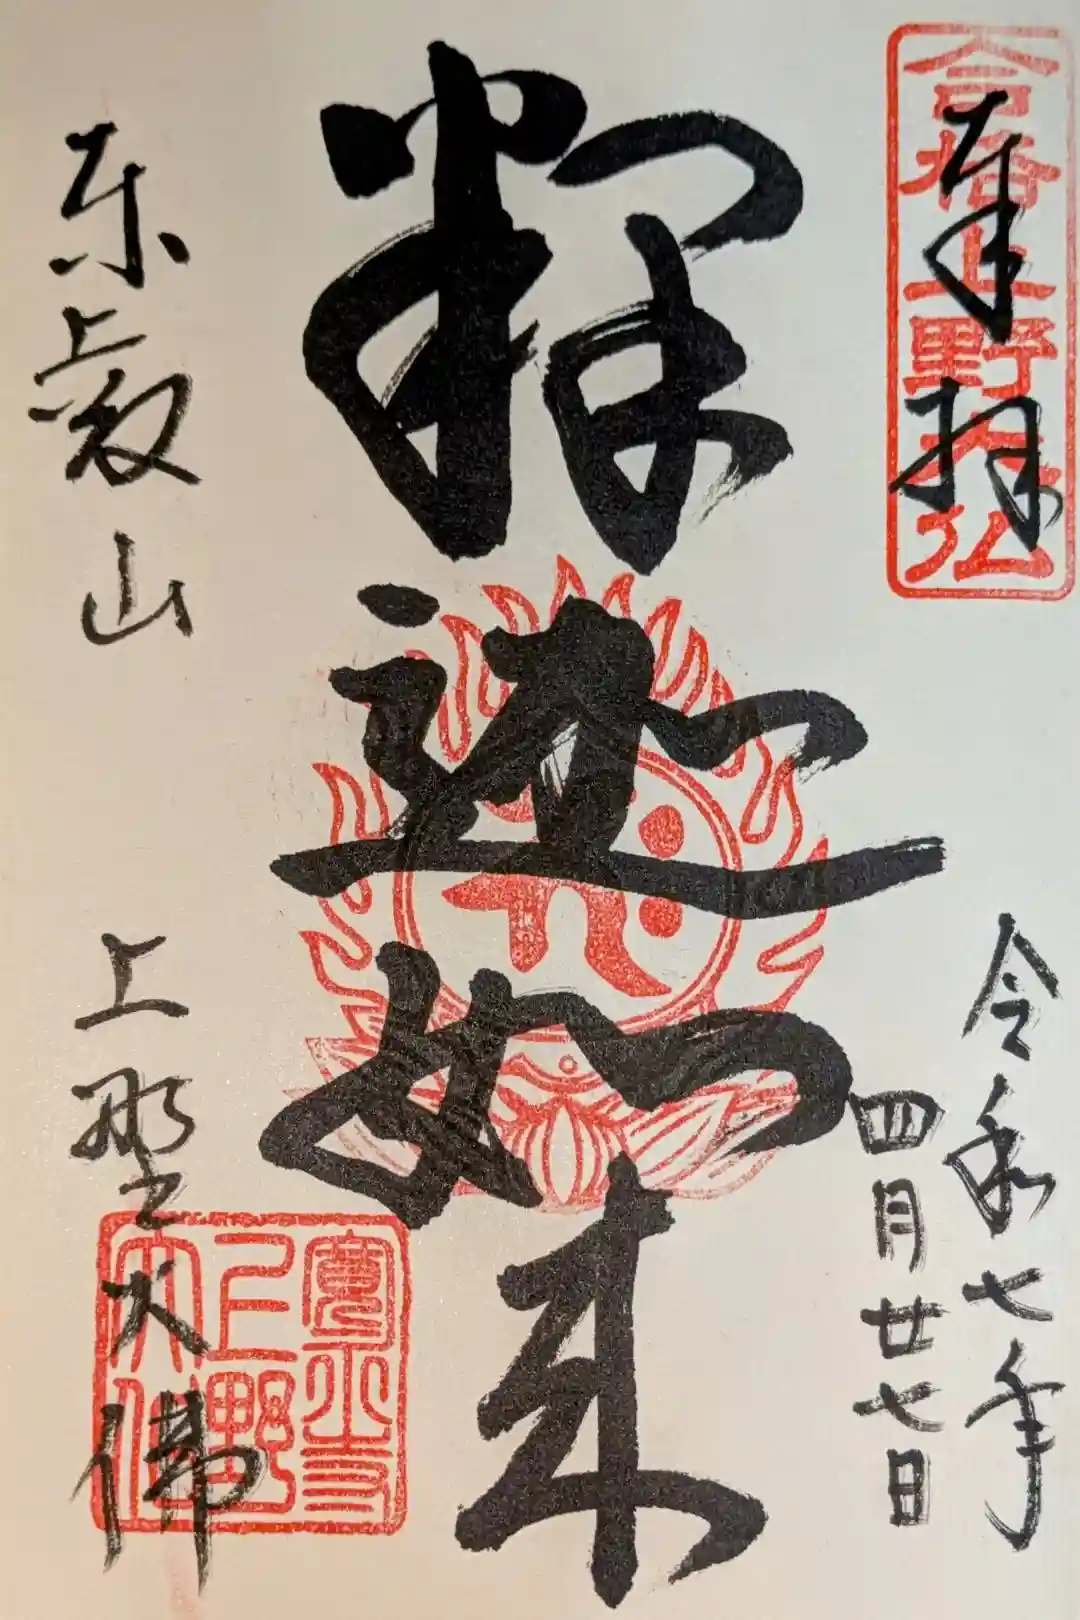 奉拝
合格上野大仏
令和七年
四月廿七日
釋迦如来
東叡山
上野大佛
寛永寺
上野
大仏